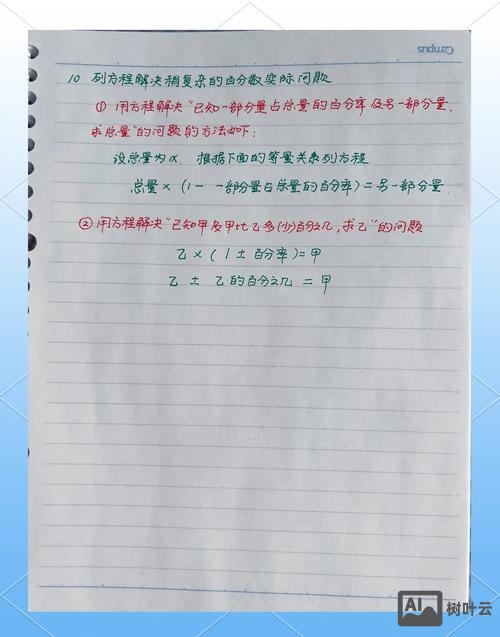 Campus
10 列方程解决稍复杂的百分数实际问题
① 用方程解决“已知一部分量占总量的百分率及另一部分量,
求总量”的问题的方法如下:
设总量为x, 根据下面的等量关系列方程
总量×(1-一部分量占总量的百分率)=另一部分量.
② 用方程解决“已知甲及甲比乙多(少)百分之几,求乙”的问题
乙×(1±百分率)=甲
乙 ± 乙的百分之几 = 甲
AI 树叶云